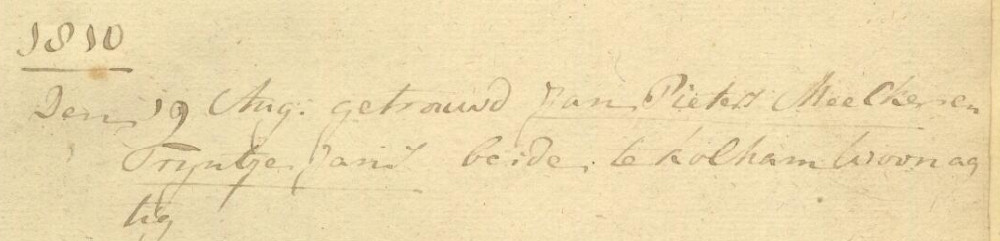 1810
Den 19 Aug. getrouwd Jan Pieters Meelker en
Tryntje Jans beide te Kolham Woonag
tig